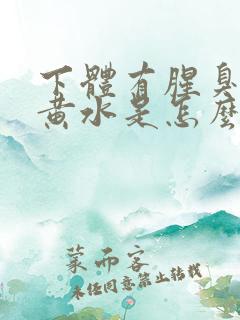 下體有腥臭
黃水是怎麼
菜而客
未经同意禁止转载